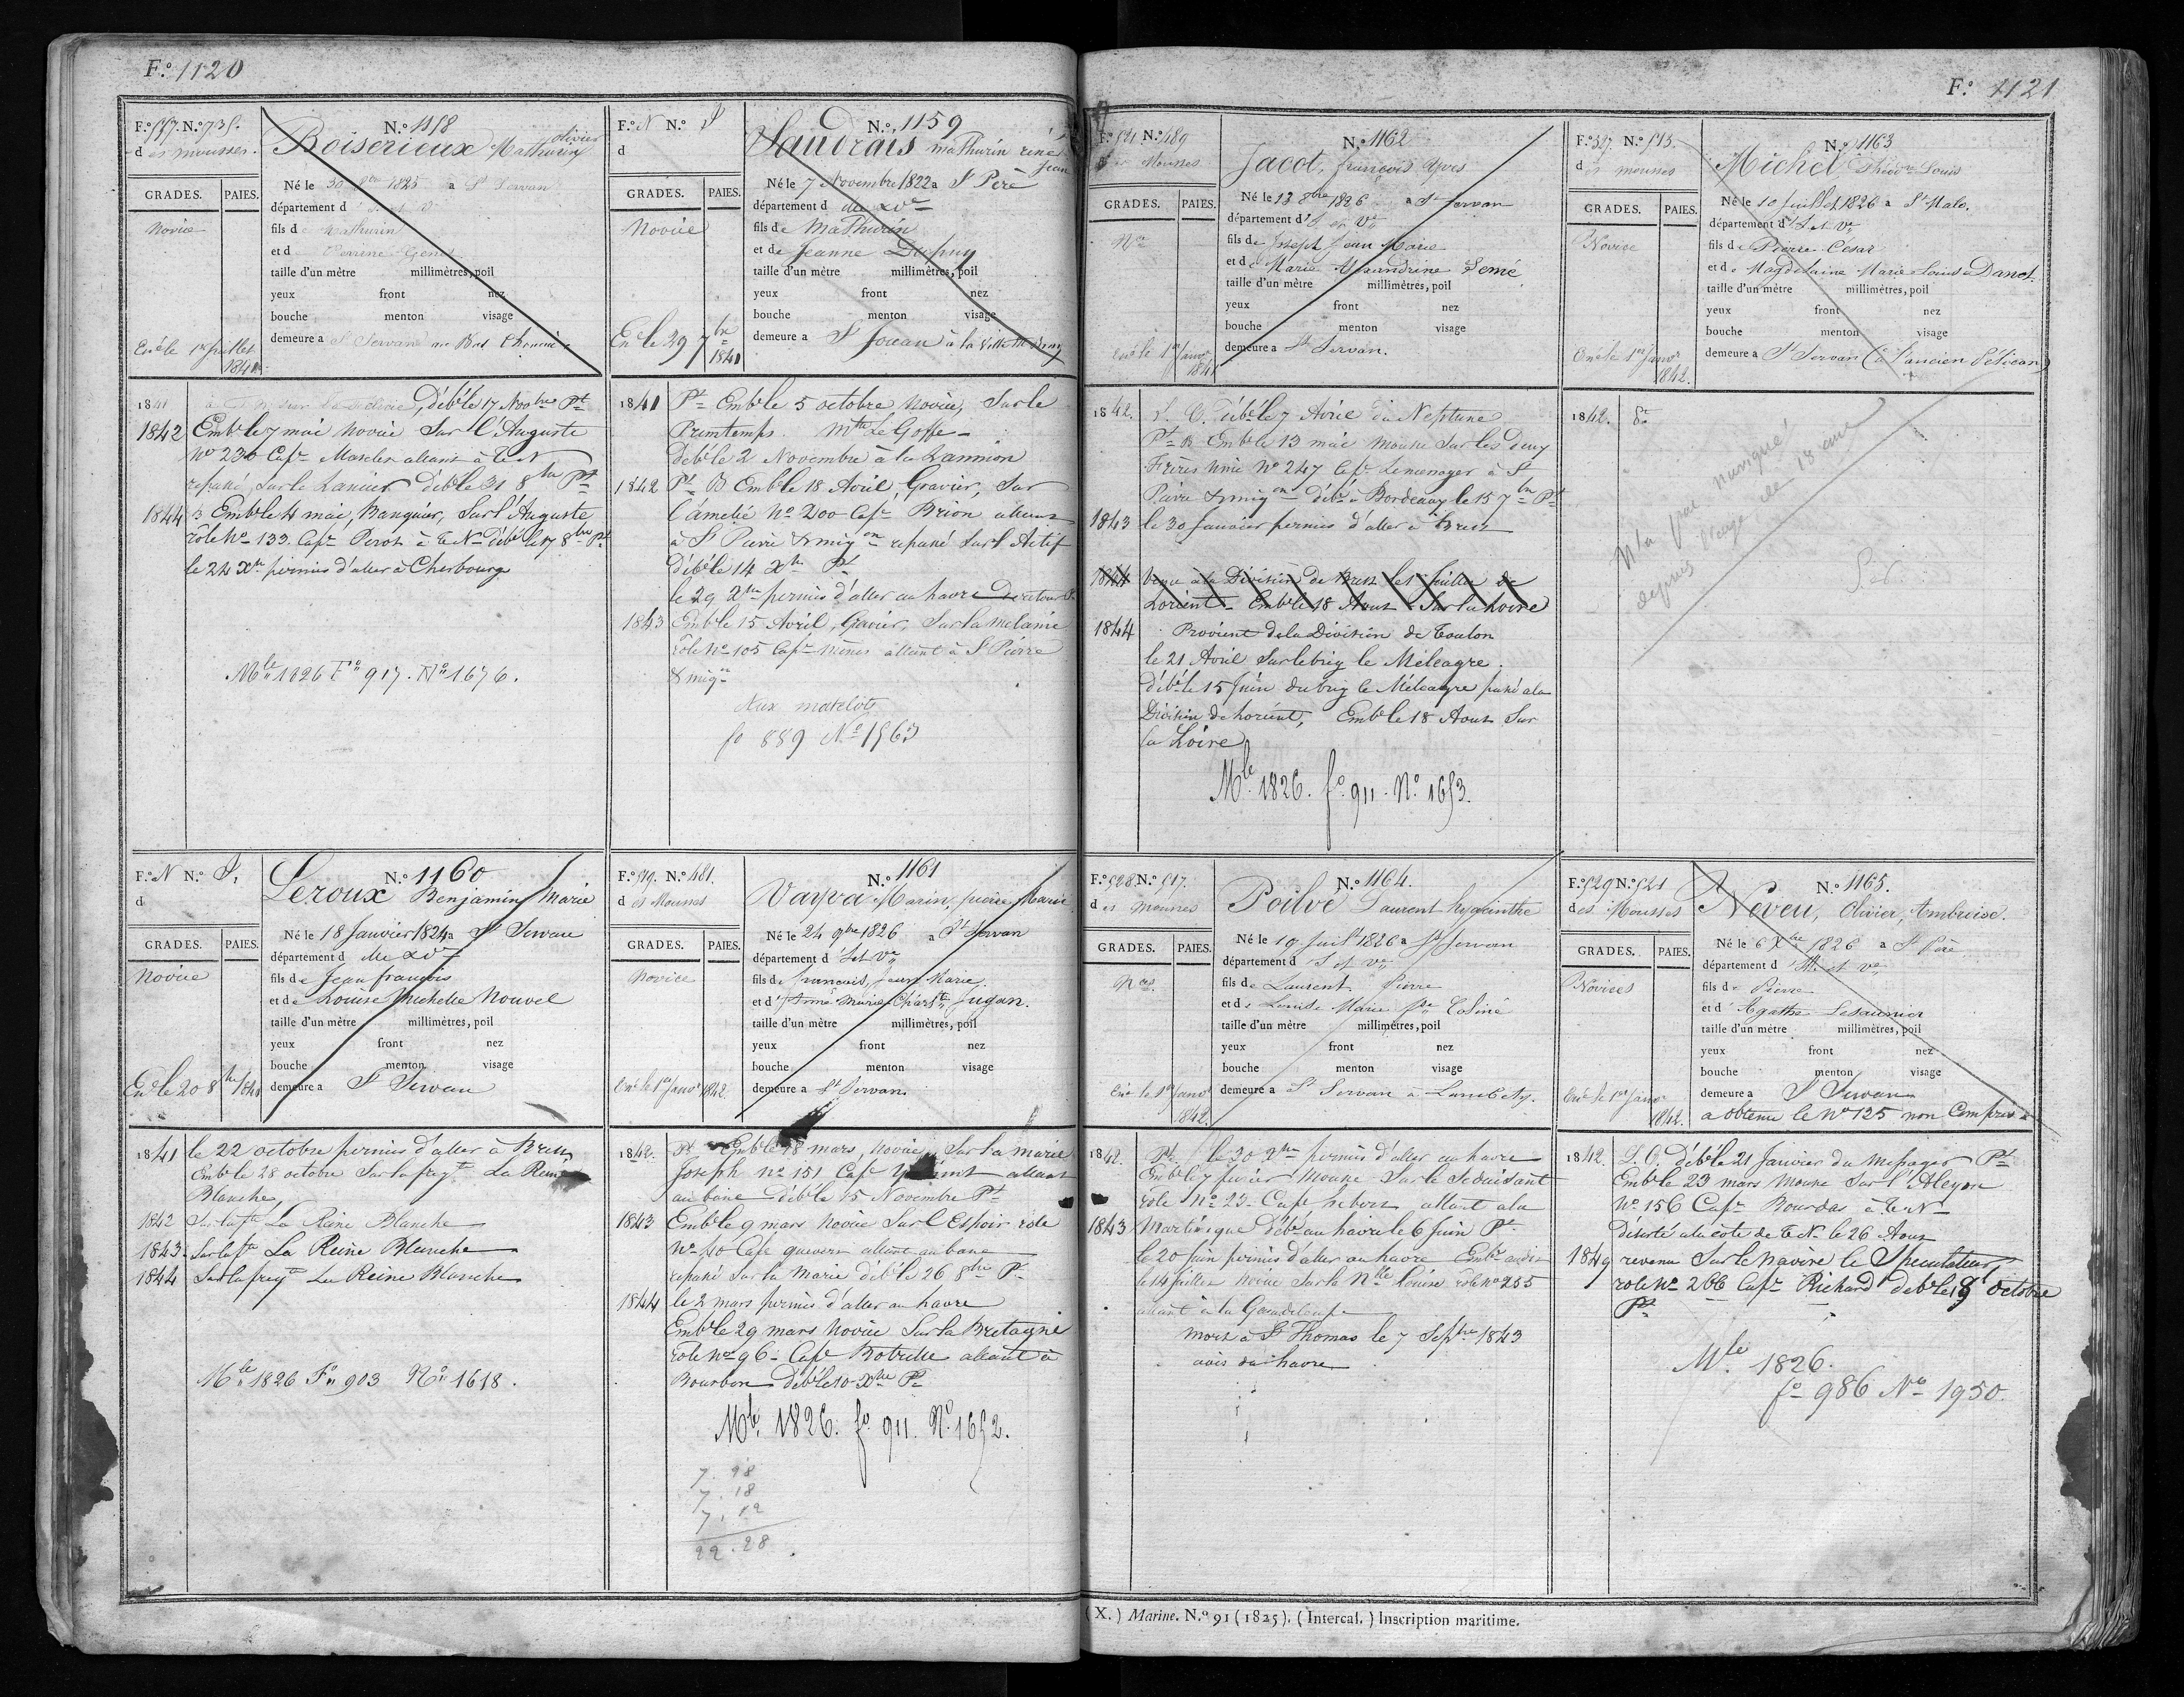 F.º 1120
F.º 577. N.º 735.
des mousses.
N.º 1158
Boiserieux Mathurin olivier
GRADES. PAIES.
Novice
Né le 30 1825 a St Servan
département d
fils de Mathurin
et de Perrine Genet
taille d'un mètre millimètres, poil
yeux front nez
bouche menton visage
demeure a St Servan au Bas Chemin
Ené le 1er Juillet
1841
1841 Débé le 17 Novbre Pt
1842 Embé le 7 mai novice Sur l'Auguste
No 236 Cape allant à T.N.
repassé Sur le Lancier débé le 31 8bre Pt
1844 B Embé le 4 mai, Banquier, Sur l'Auguste
rôle No 133. Cape Perot à T.N. débé le 17 8bre Pt
le 24 Xbre permis d'aller à Cherbourg
Mle 1826 Fo 917. No 1676.
F.º N N.º I
d
N.º 1159
Saudrais Mathurin réné
Jean
GRADES. PAIES.
Novice
Né le 7 Novembre 1822 a St Père
département d
fils de Mathurin
et de Jeanne Dupuy
taille d'un mètre millimètres, poil
yeux front nez
bouche menton visage
demeure a St Jouan à la Ville
Ené le 29 7bre
1841
1841 Pt Embé le 5 octobre novice, Sur le
Printemps. Mtre Le Goffe
débé le 2 Novembre à la Lannion
1842 Pt B Embé le 18 Avril, Gravier, Sur
l'Amélie No 200 Cape Brion allant
à St Pierre & miqon repassé Sur l'Actif
débé le 14 Xbre Pt
le 29 Xbre permis d'aller au havre De retour
1843 Embé le 15 Avril, Gravier, Sur la Mélanie
rôle No 105 Cape allant à St Pierre
& miqon
Aux matelots
fo 889 No 1563
F.º N N.º I.
d
N.º 1160
Leroux Benjamin Marie
GRADES. PAIES.
Novice
Né le 18 Janvier 1824 a St Servan
département d
fils de Jean françois
et de Louise Michelle Nouvel
taille d'un mètre millimètres, poil
yeux front nez
bouche menton visage
demeure a St Servan
Ené le 20 8bre 1841
1841 le 22 octobre permis d'aller à Brest
Embé le 28 octobre Sur la frégte La Reine
Blanche
1842 Sur la fte La Reine Blanche
1843. Sur la fte La Reine Blanche
1844 Sur la frégte La Reine Blanche
Mle 1826 Fo 903 No 1618.
F.º 519. N.º 481.
des Mousses
N.º 1161
Vayva Marin, pierre Marie
GRADES. PAIES.
Novice
Né le 24 9bre 1826 a St Servan
département d'I et Vne
fils de françois, Jean Marie.
et d'Anne Marie Charlte Jugan.
taille d'un mètre millimètres, poil
yeux front nez
bouche menton visage
demeure a St Servan
Ené le 1er Janvr 1842.
1842. Pt Embé le 18 mars, novice Sur la marie
Joseph no 151 Cape allant
au banc débé le 15 Novembre Pt
1843 Embé le 9 mars Novice Sur l'Espoir rôle
No 40 Cape allant au banc
repassé Sur la Marie débé le 26 8bre Pt
1844 le 2 mars permis d'aller au havre
Embé le 29 mars Novice Sur la Bretagne
rôle No 96. Cape Botrelle allant à
Bourbon débé le 10 Xbre Pt
Mle 1826. fo 911. No 1652.
7. 98
7. 18
7. 12
22. 28
F.º 1121
F.º 521 N.º 489
des Mousses
N.º 1162
Jacot, françois Yves
GRADES. PAIES.
Nce
Né le 13 8bre 1826 a St Servan
département d'I et Vne
fils de Joseph Jean Marie
et de Marie Semé.
taille d'un mètre millimètres, poil
yeux front nez
bouche menton visage
demeure a St Servan.
Ené le 1er Janvr
1842
1842. S. C. Débé le 7 Avril du Neptune
Pt B Embé le 13 mai mousse Sur les deux
Frères unis No 247 Cape Lemenager à St
Pierre & miqon débé à Bordeaux le 15 7bre Pt
1843 le 30 Janvier permis d'aller à Brest
1844 Venu à la Division de Brest les Juillet de
Lorient Embé le 18 Aout Sur la Loire
1844 Provient de la Division de Toulon
le 21 Avril Sur le brig le Méléagre.
débé le 15 Juin du brig le Méléagre passé a la
Division de Lorient, Embé le 18 Aout Sur
la Loire
Mle 1826. fo 911. No 1653.
F.º 527. N.º 513.
des mousses
N.º 1163
Michel, Louis
GRADES. PAIES.
Novice
Né le 10 Juillet 1826 a St Malo.
département d'I et Vne
fils de Pierre César
et de Magdelaine Marie Louise Danet.
taille d'un mètre millimètres, poil
yeux front nez
bouche menton visage
demeure a St Servan (à l'ancien Pélican)
Ené le 1er Janvr
1842.
1842.
N'a pas navigué
depuis l'age de 18 ans
F.º 528 N.º 517.
des Mousses
N.º 1164.
Poilvé Laurent hyacinthe
GRADES. PAIES.
Nces.
Né le 19 Juilt 1826 a St Servan
département d'I et Vne
fils de Laurent Pierre
et de Louise Marie
taille d'un mètre millimètres, poil
yeux front nez
bouche menton visage
demeure a St Servan à Lambety.
Ené le 1er Janvr
1842.
1842. Pt le 30 Xbre permis d'aller au havre
Embé le 7 fevrier Mousse Sur le Séduisant
rôle No 23. Cape allant a la
1843 Martinique débé au havre le 6 Juin Pt
le 20 Juin permis d'aller au havre Embé audit
le 14 Juillet novice Sur la Nlle Louise rôle No 255
allant à la Guadeloupe
mort à St Thomas le 7 Septbre 1843
avis du havre
F.º 529 N.º 521
des Mousses
N.º 1165.
Neveu, Olivier, Ambroise.
GRADES. PAIES.
Novices
Né le 6 Xbre 1826 a St Père
département d'Ille et Vne
fils de Pierre
et d'Agathe Lesaunier
taille d'un mètre millimètres, poil
yeux front nez
bouche menton visage
demeure a St Servan
a obtenu le No 125 non Compris
Ené le 1er Janvr
1842.
1842. S. C. débé le 21 Janvier du Messager Pt
Embé le 23 mars mousse Sur l'Alcyon
No 156 Cape Bourdas à T.N.
Déserté a la côte de T.N. le 26 Aout
1849 revenu Sur le navire le Speculateur,
role No 266 Cape Richard débé le 9 Octobre
Pt
Mle 1826.
fo 986 No 1950.
(X.) Marine. N.º 91 (1825). (Intercal.) Inscription maritime.